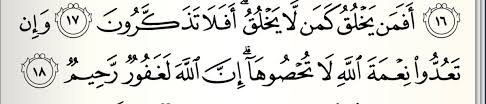 ﴿١٦﴾ أَفَمَن يَخْلُقُ كَمَن لَّا يَخْلُقُ ۗ أَفَلَا تَذَكَّرُونَ ﴿١٧﴾ وَإِن
تَعُدُّوا۟ نِعْمَةَ ٱللَّهِ لَا تُحْصُوهَآ ۗ إِنَّ ٱللَّهَ لَغَفُورٌ رَّحِيمٌ ﴿١٨﴾